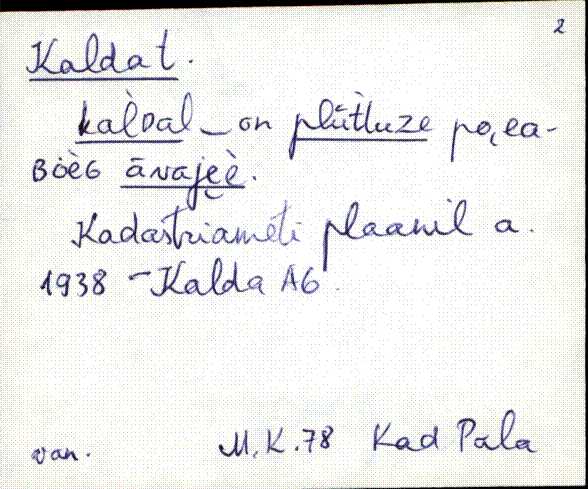 2
Kaldat.
kalDal on plūtluze po,ea-
BöèG ānajeè.
Kadastriameti plaanil a.
1938 - Kalda A6.
van. M.K.78 Kad Pala